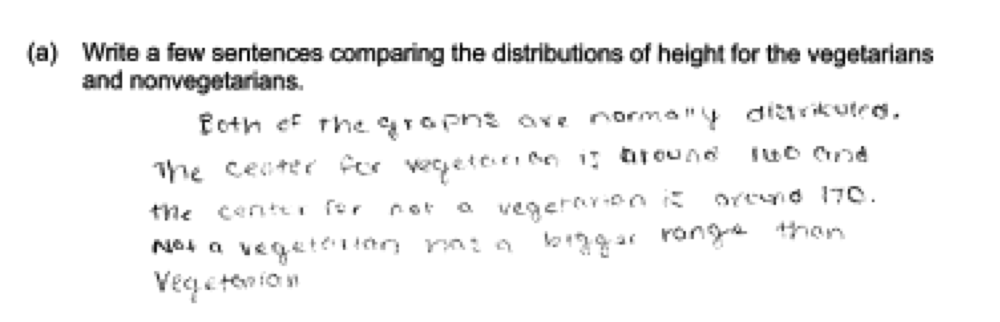 (a) Write a few sentences comparing the distributions of height for the vegetarians
and nonvegetarians.
Both of the graphs are normally distributed.
The center for vegetarian is around 160 and
the center for not a vegetarian is around 170.
Not a vegetarian has a bigger range than
Vegetarian